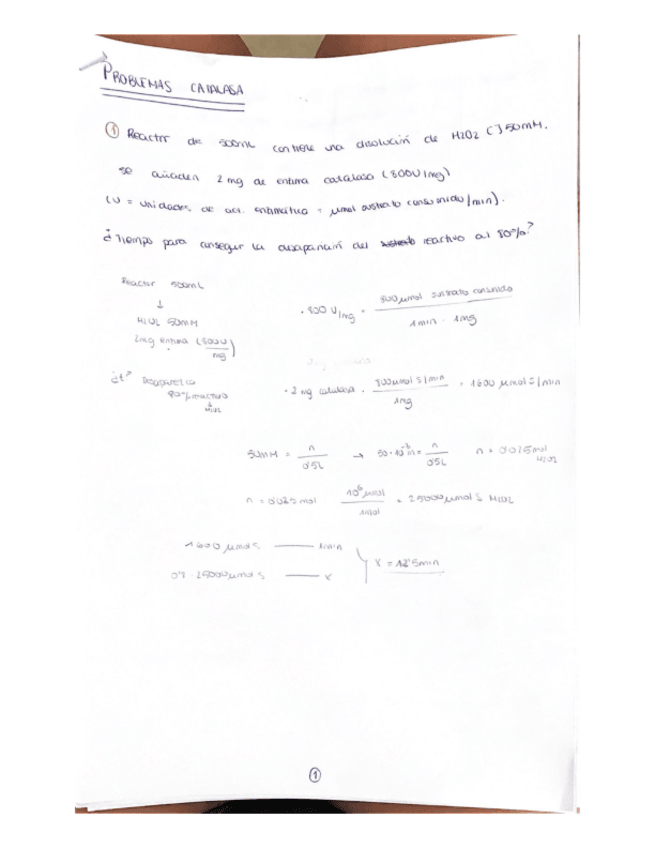 PROBLEMAS CATALASA
① Reactor de 500mL contiene una disolución de H2O2 [ ] 50mM.
se añaden 2 mg de enzima catalasa (800U/mg)
(U = unidades de act. enzimática = μmol sustrato consumido/min).
¿Tiempo para conseguir la desaparición del reactivo al 80%?
Reactor 500mL
↓
H2O2 50mM
2mg enzima (800U/mg)
¿t? Desaparezca
80% reactivo
↓
H2O2
· 800 U/mg = 800 μmol sustrato consumido / 1 min · 1mg
· 2 mg catalasa · 800 μmol S/min / 1mg = 1600 μmol S/min
50mM = n / 0'5L → 50·10⁻³ M = n / 0'5L n = 0'025 mol H2O2
n = 0'025 mol 10⁶ μmol / 1mol = 25000 μmol S H2O2
1600 μmol S —— 1min
0'8 · 25000 μmol S —— x
x = 12'5min
①